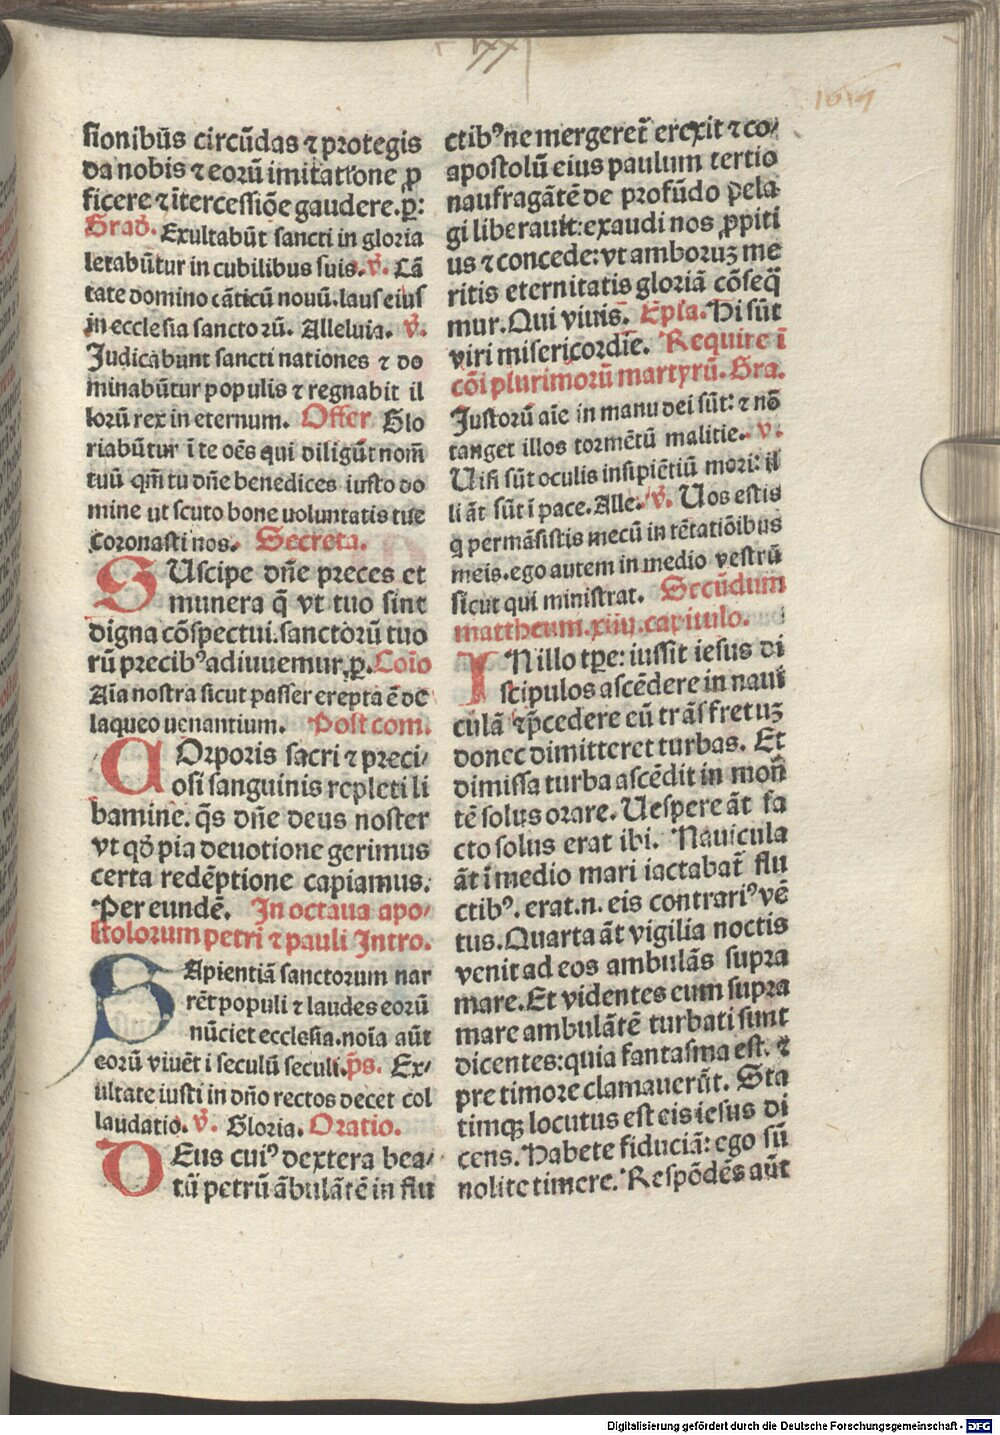 sionibūs circūdas ⁊ protegis
da nobis ⁊ eorū imitatione ꝓ
ficere ⁊ ītercessiōe gaudere. p̱:
Grad̄. Exultabūt sancti in gloria
letabūtur in cubilibus suis. v̄. Cā
tate domino cāticū nouū. laus eius
in ecclesia sanctorū. Alleluia. v̄.
Judicabunt sancti nationes ⁊ do
minabūtur populis ⁊ regnabit il
lorū rex in eternum. Offer Glo
riabūtur ī te oēs qui diligūt nom̄
tuū qm̄ tu dn̄e benedices iusto do
mine ut scuto bone uoluntatis tue
Coronasti nos. Secreta.
SUscipe dn̄e preces et
munera q̄ vt tuo sint
digna cōspectui. sanctorū tuo
rū precibꝰ adiuuemur. ꝑ. Coīo
Aīa nostra sicut passer erepta ē de
laqueo uenantium. Post com.
COrporis sacri ⁊ preci⸗
osi sanguinis repleti li
bamine. q̄s dn̄e deus noster
vt qd̄ pia deuotione gerimus
certa redēptione capiamus.
Per eundē. In octaua apo⸗
stolorum petri ⁊ pauli Intro.
SApientiā sanctorum nar
rēt populi ⁊ laudes eorū
nūciet ecclesia. noīa aūt
eorū viuēt i seculū seculi. p̄s. Ex⸗
ultate iusti in dn̄o rectos decet col
laudatio. v̄. Gloria. Oratio.
DEus cuiꝰ dextera bea⸗
tū petrū ābulātē in flu
ctibꝰ ne mergeret̄ erexit ⁊ co⸗
apostolū eius paulum tertio
naufragātē de profūdo pela
gi liberauit: exaudi nos ꝓpiti
us ⁊ concede: vt amboruꝫ me
ritis eternitatis gloriā cōseq̄
mur. Qui viuis. Epl̄a. Hi sūt
viri misericordīe. Require ī
cōi plurimorū martyrū. Gra.
Justorū aīe in manu dei sūt: ⁊ nō
tanget illos tormētū malitie. v.
Uisi sūt oculis insipiētiū mori: il
li āt sūt ī pace. Alle. v̄. Uos estis
q permāsistis mecū in tētatiōibus
meis. ego autem in medio vestrū
sicut qui ministrat. Secūdum
mattheum. xiiij. capitulo.
IN illo tp̄e: iussit iesus di
scipulos ascēdere in naui
culā ⁊ p̄cedere eū trās fretuꝫ
donec dimitteret turbas. Et
dimissa turba ascēdit in mon̄
tē solus orare. Uespere āt fa
cto solus erat ibi. Nauicula
āt ī medio mari iactabat̄ flu
ctibꝰ. erat. n. eis contrariꝰ vē
tus. Quarta āt vigilia noctis
venit ad eos ambulās supra
mare. Et videntes eum supra
mare ambulātē turbati sunt
dicentes: quia fantasma est. ⁊
pre timore clamauerūt. Sta
timqꝫ locutus est eis iesus di
cens. Habete fiduciā: ego sū
nolite timere. Respōdēs aūt
Digitalisierung gefördert durch die Deutsche Forschungsgemeinschaft - DFG